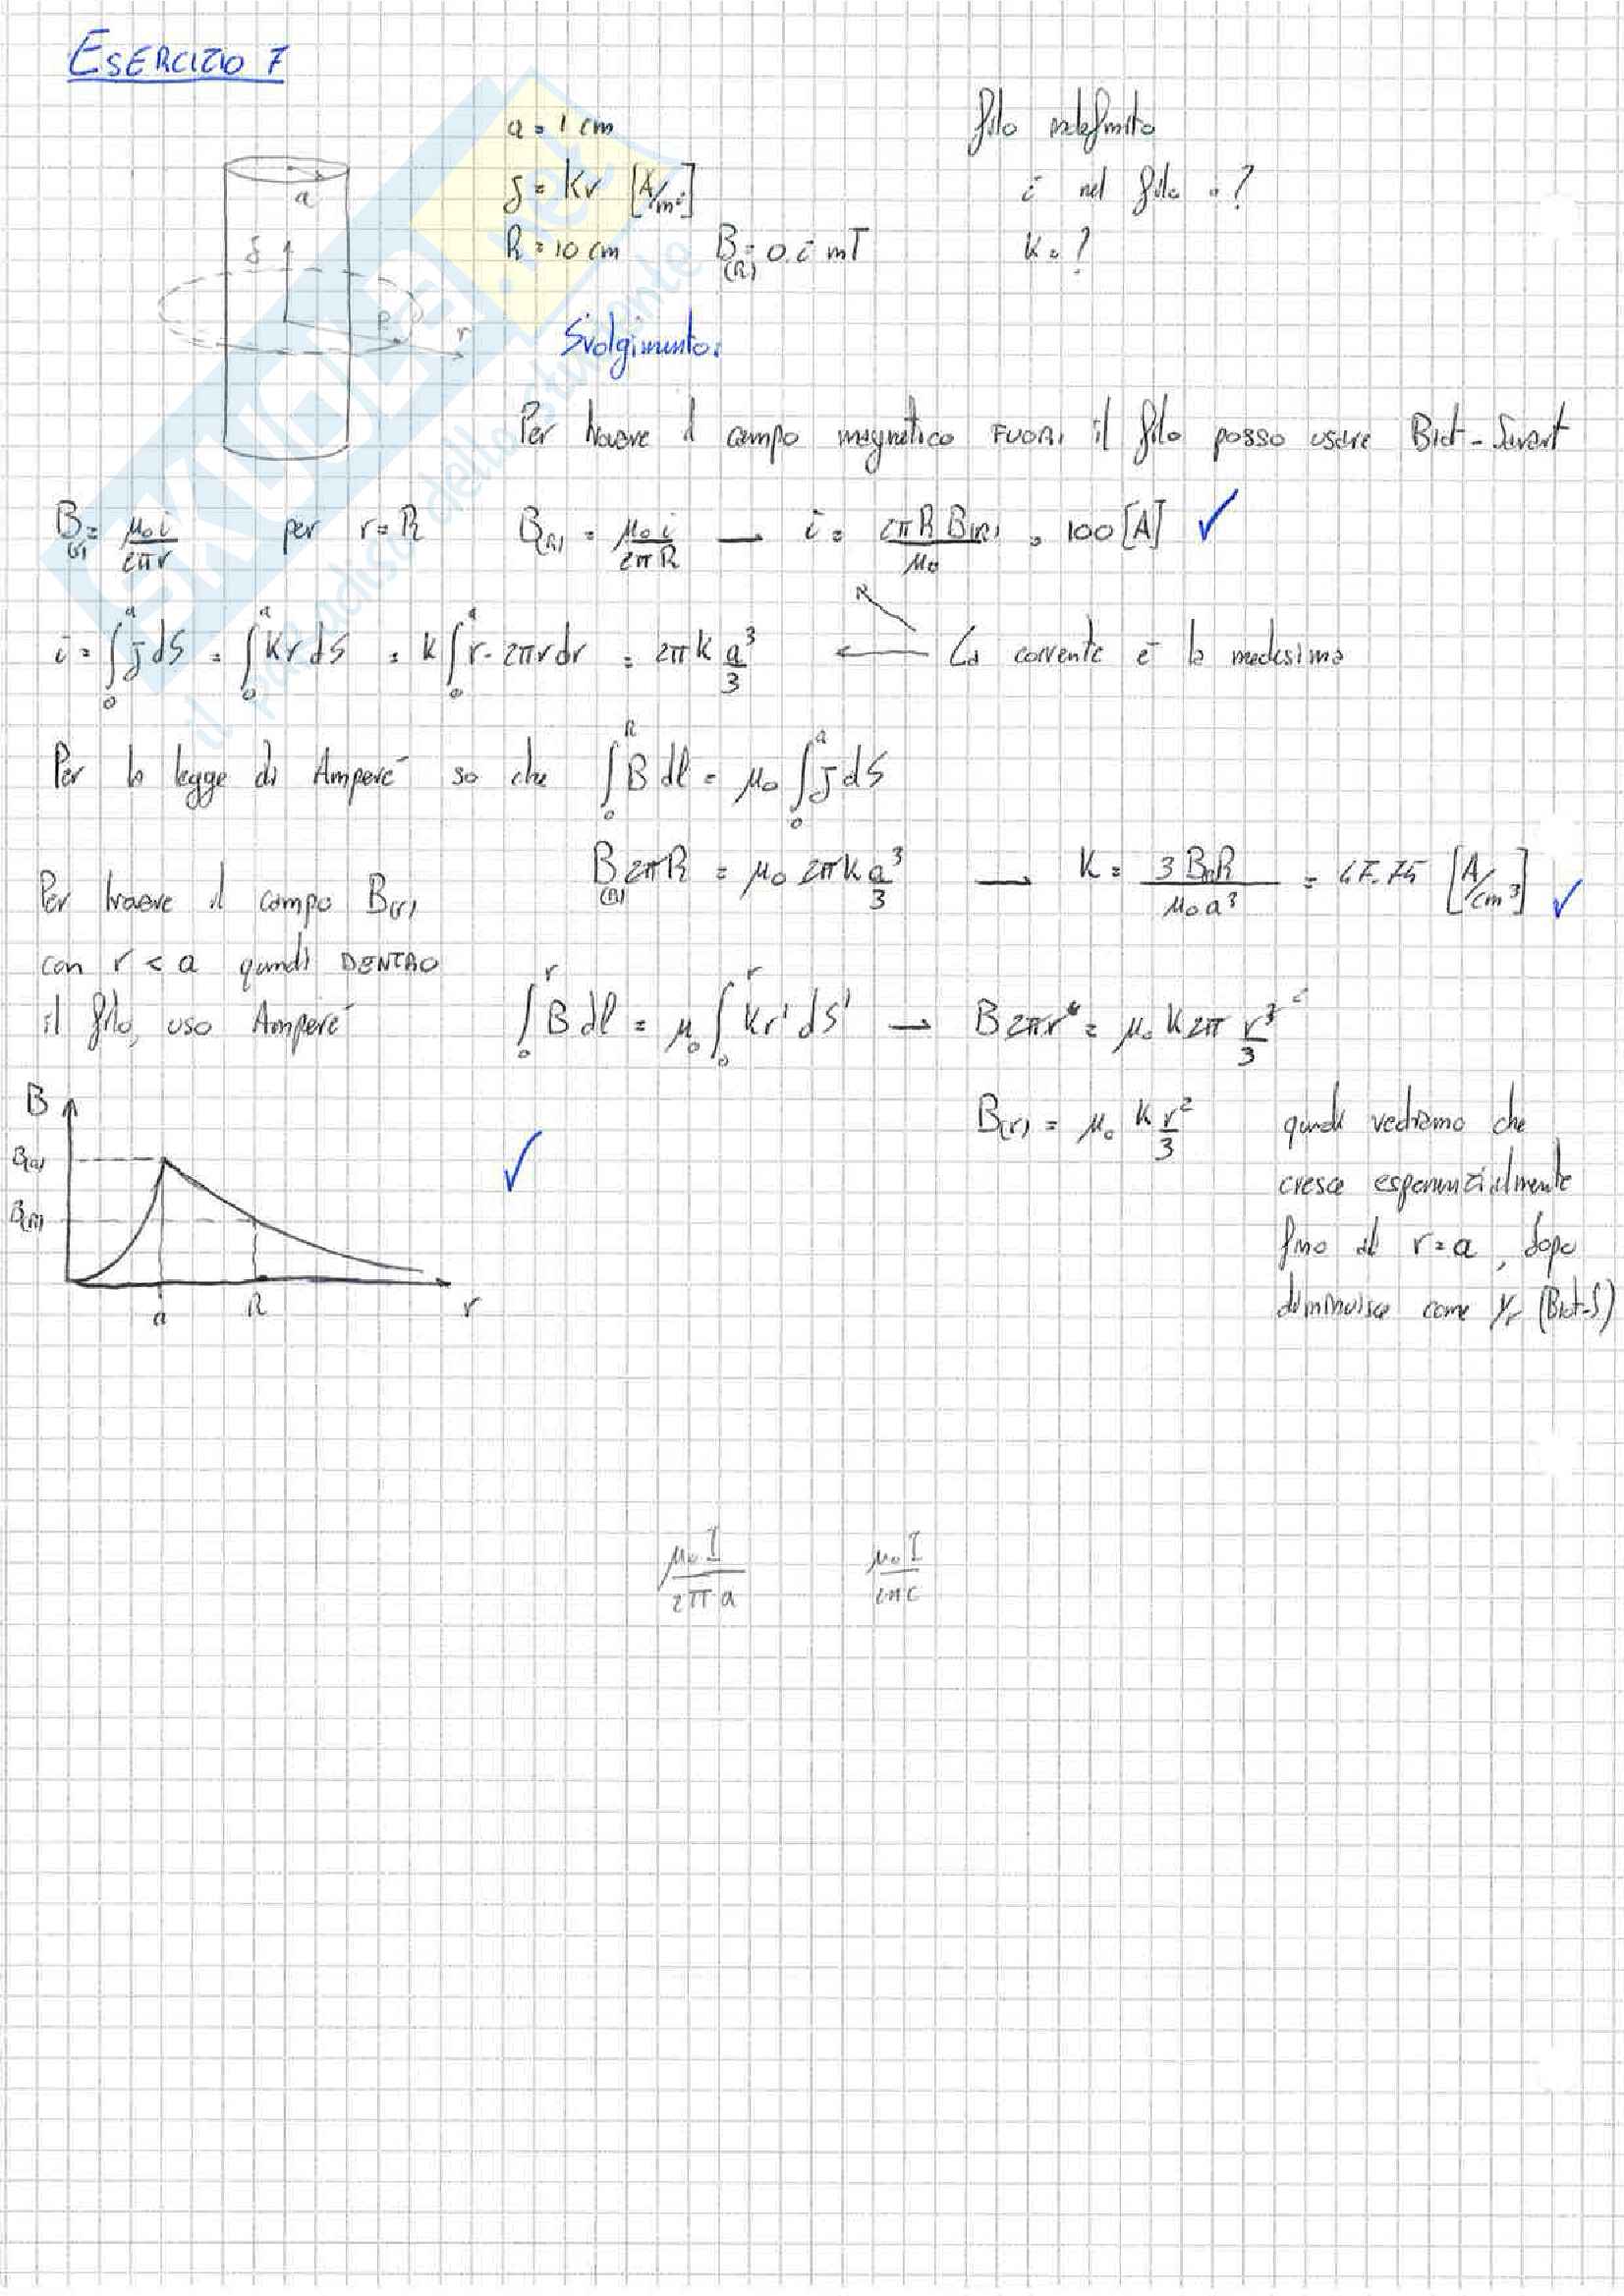 ESERCIZIO 7
a = 1 cm
filo indefinito
J = Kr [A/m²]
i nel filo = ?
R = 10 cm B(R) = 0.2 mT
K = ?
a
J
R
r
Svolgimento:
Per trovare il campo magnetico FUORI il filo posso usare Biot-Savart
B(r) = μ₀i/2πr per r=R B(R) = μ₀i/2πR → i = 2πR B(R)/μ₀ = 100 [A] ✓
i = ∫₀ᵃ J dS = ∫₀ᵃ Kr dS = K ∫₀ᵃ r·2πr dr = 2πK a³/3 ← La corrente è la medesima
Per la legge di Amperè so che ∫₀ᴿ B dl = μ₀ ∫₀ᵃ J dS
B(R) 2πR = μ₀ 2πK a³/3 → K = 3 B(R) R/μ₀a³ = 47.75 [A/cm³] ✓
Per trovare il campo B(r)
con r < a quindi DENTRO
il filo, uso Amperè
∫₀ʳ B dl = μ₀ ∫₀ʳ Kr' dS' → B 2πr = μ₀ K 2π r³/3 ²
B(r) = μ₀ K r²/3 quindi vediamo che
cresce esponenzialmente
fino ad r=a, dopo
diminuisce come 1/r (Biot-S)
B
B(a)
B(R)
a
R
r
✓
μ₀ I/2πa
μ₀ I
il paradiso dello studente
SKUOLA.net